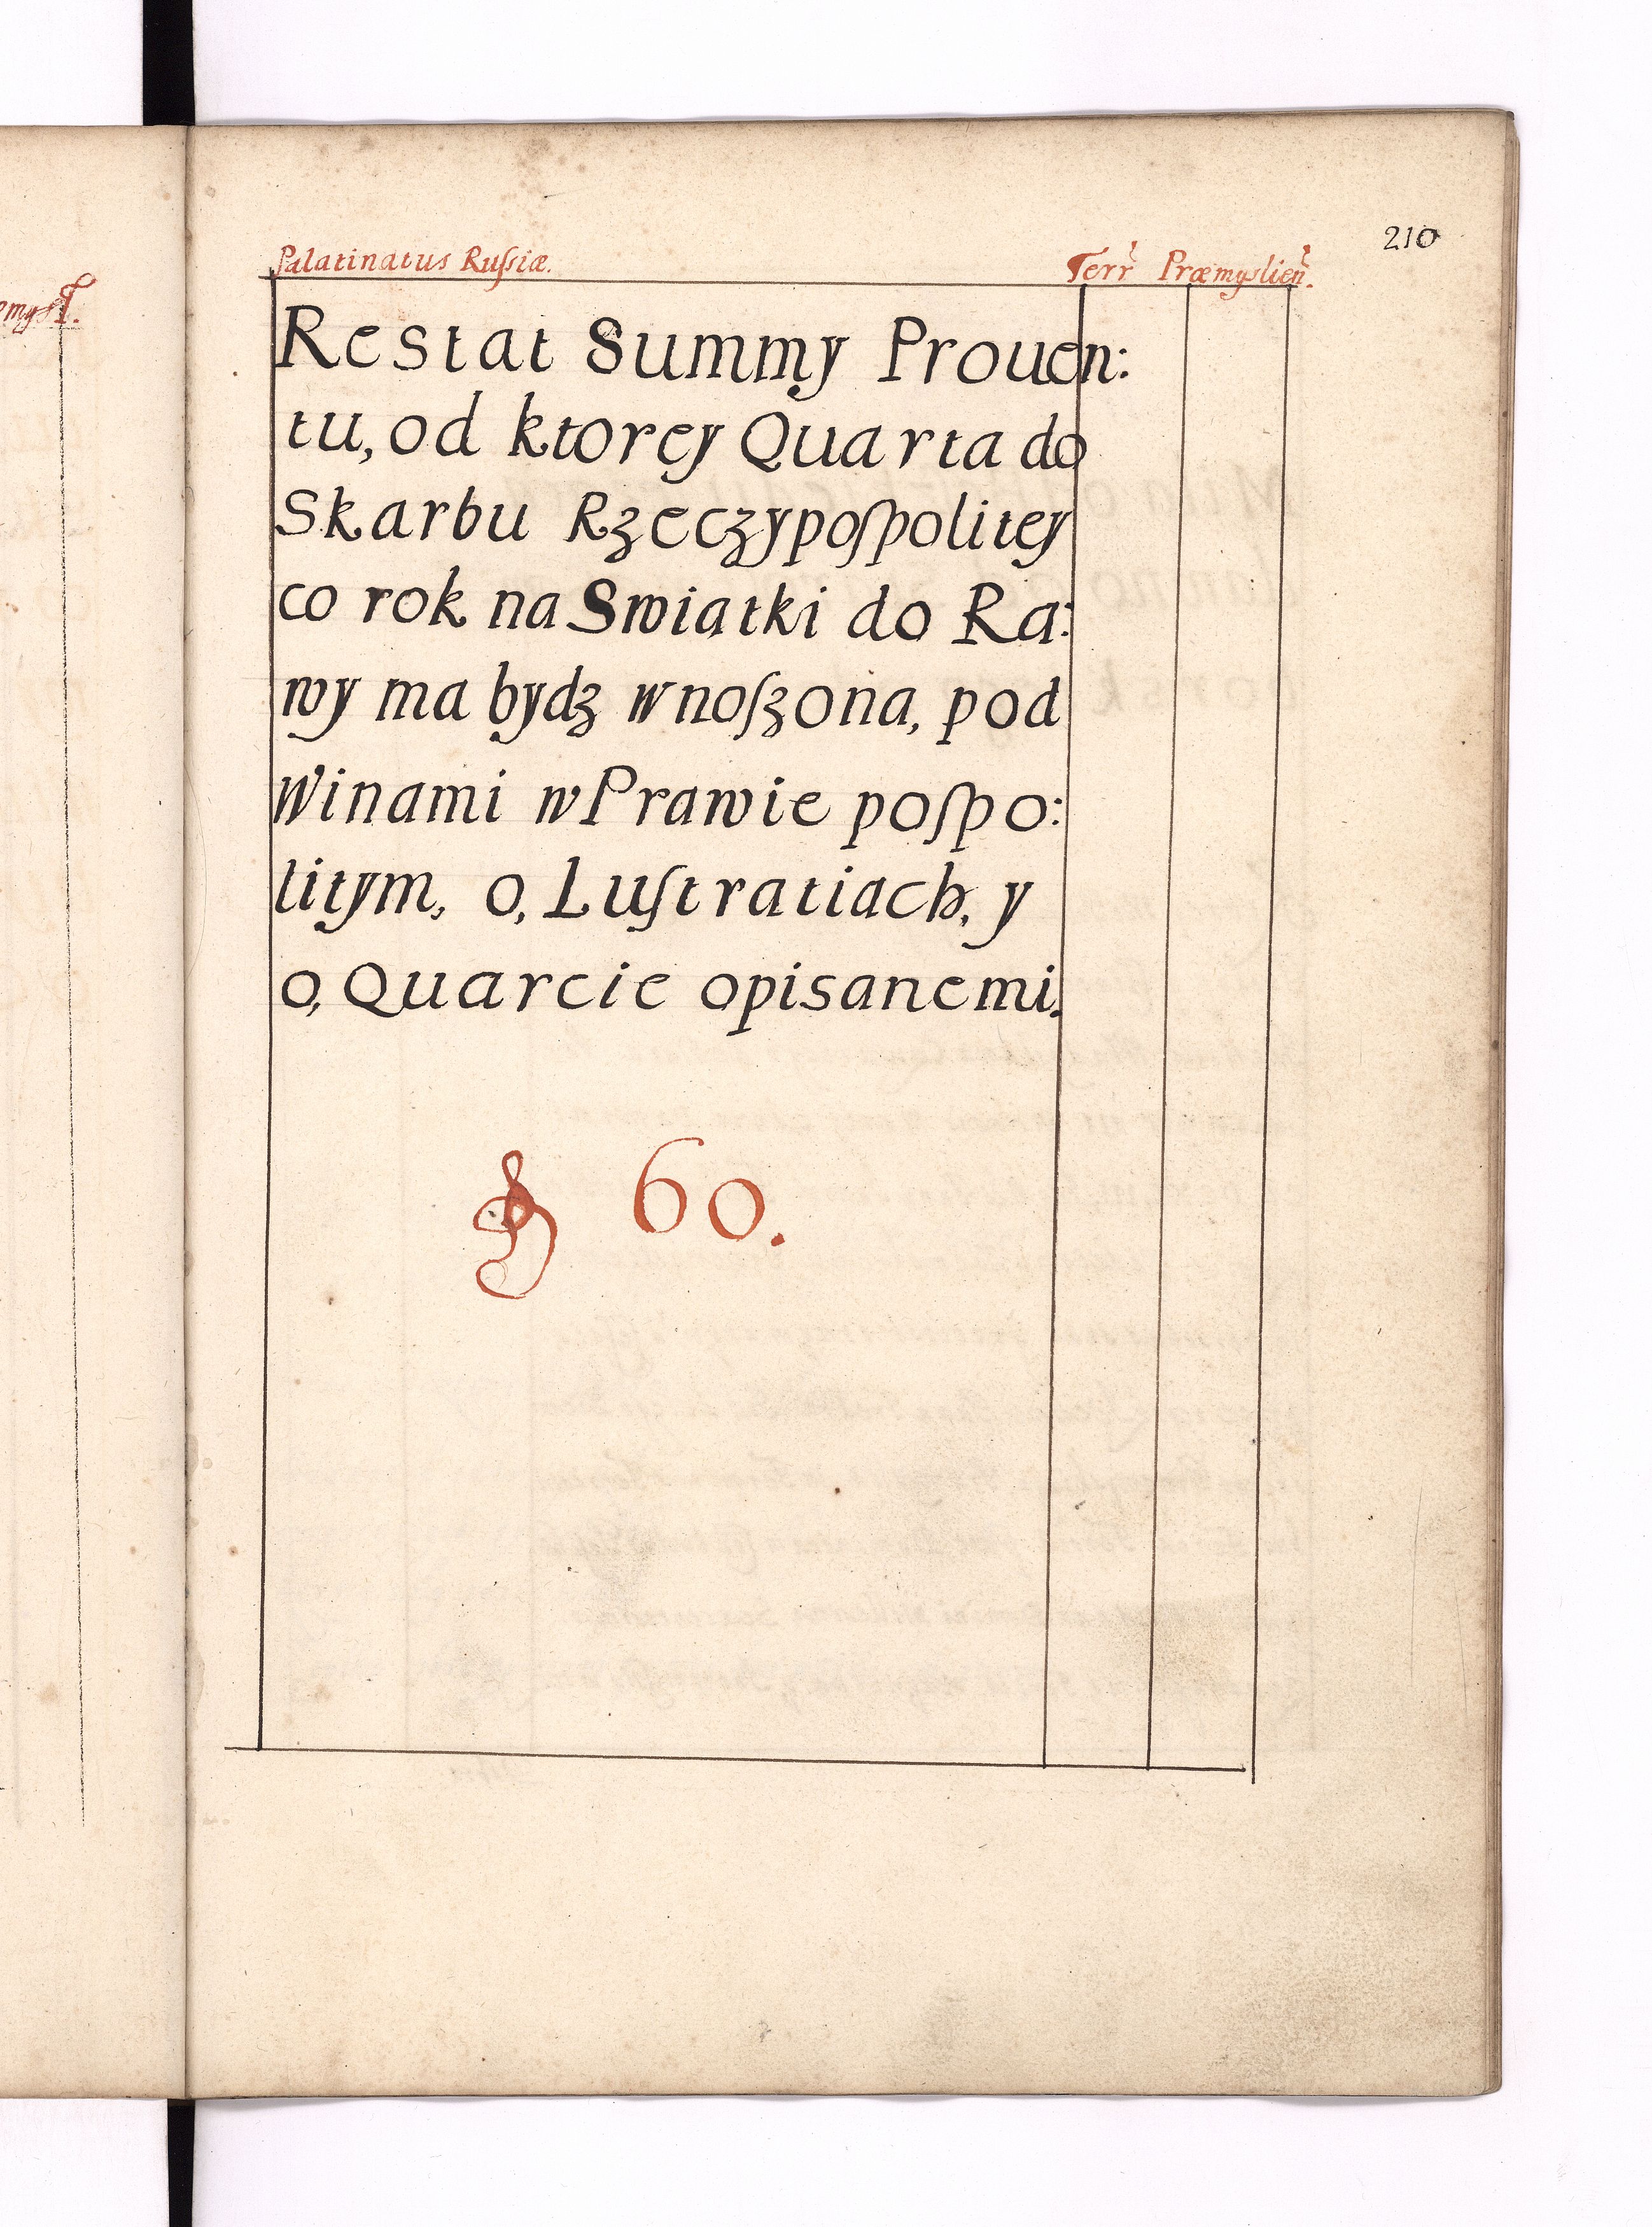 210
Palatinatus Rußiæ. Terr Præmyslien.
Restat Summy Prouen:
tu, od ktorey Quarta do
Skarbu Rzeczypoſpolitey
co rok na Swiatki do Ra:
wy ma bydz wnoſzona, pod
Winami w Prawie poſpo:
litym, o, Luſtratiach, y
o, Quarcie opisanemi.
60.